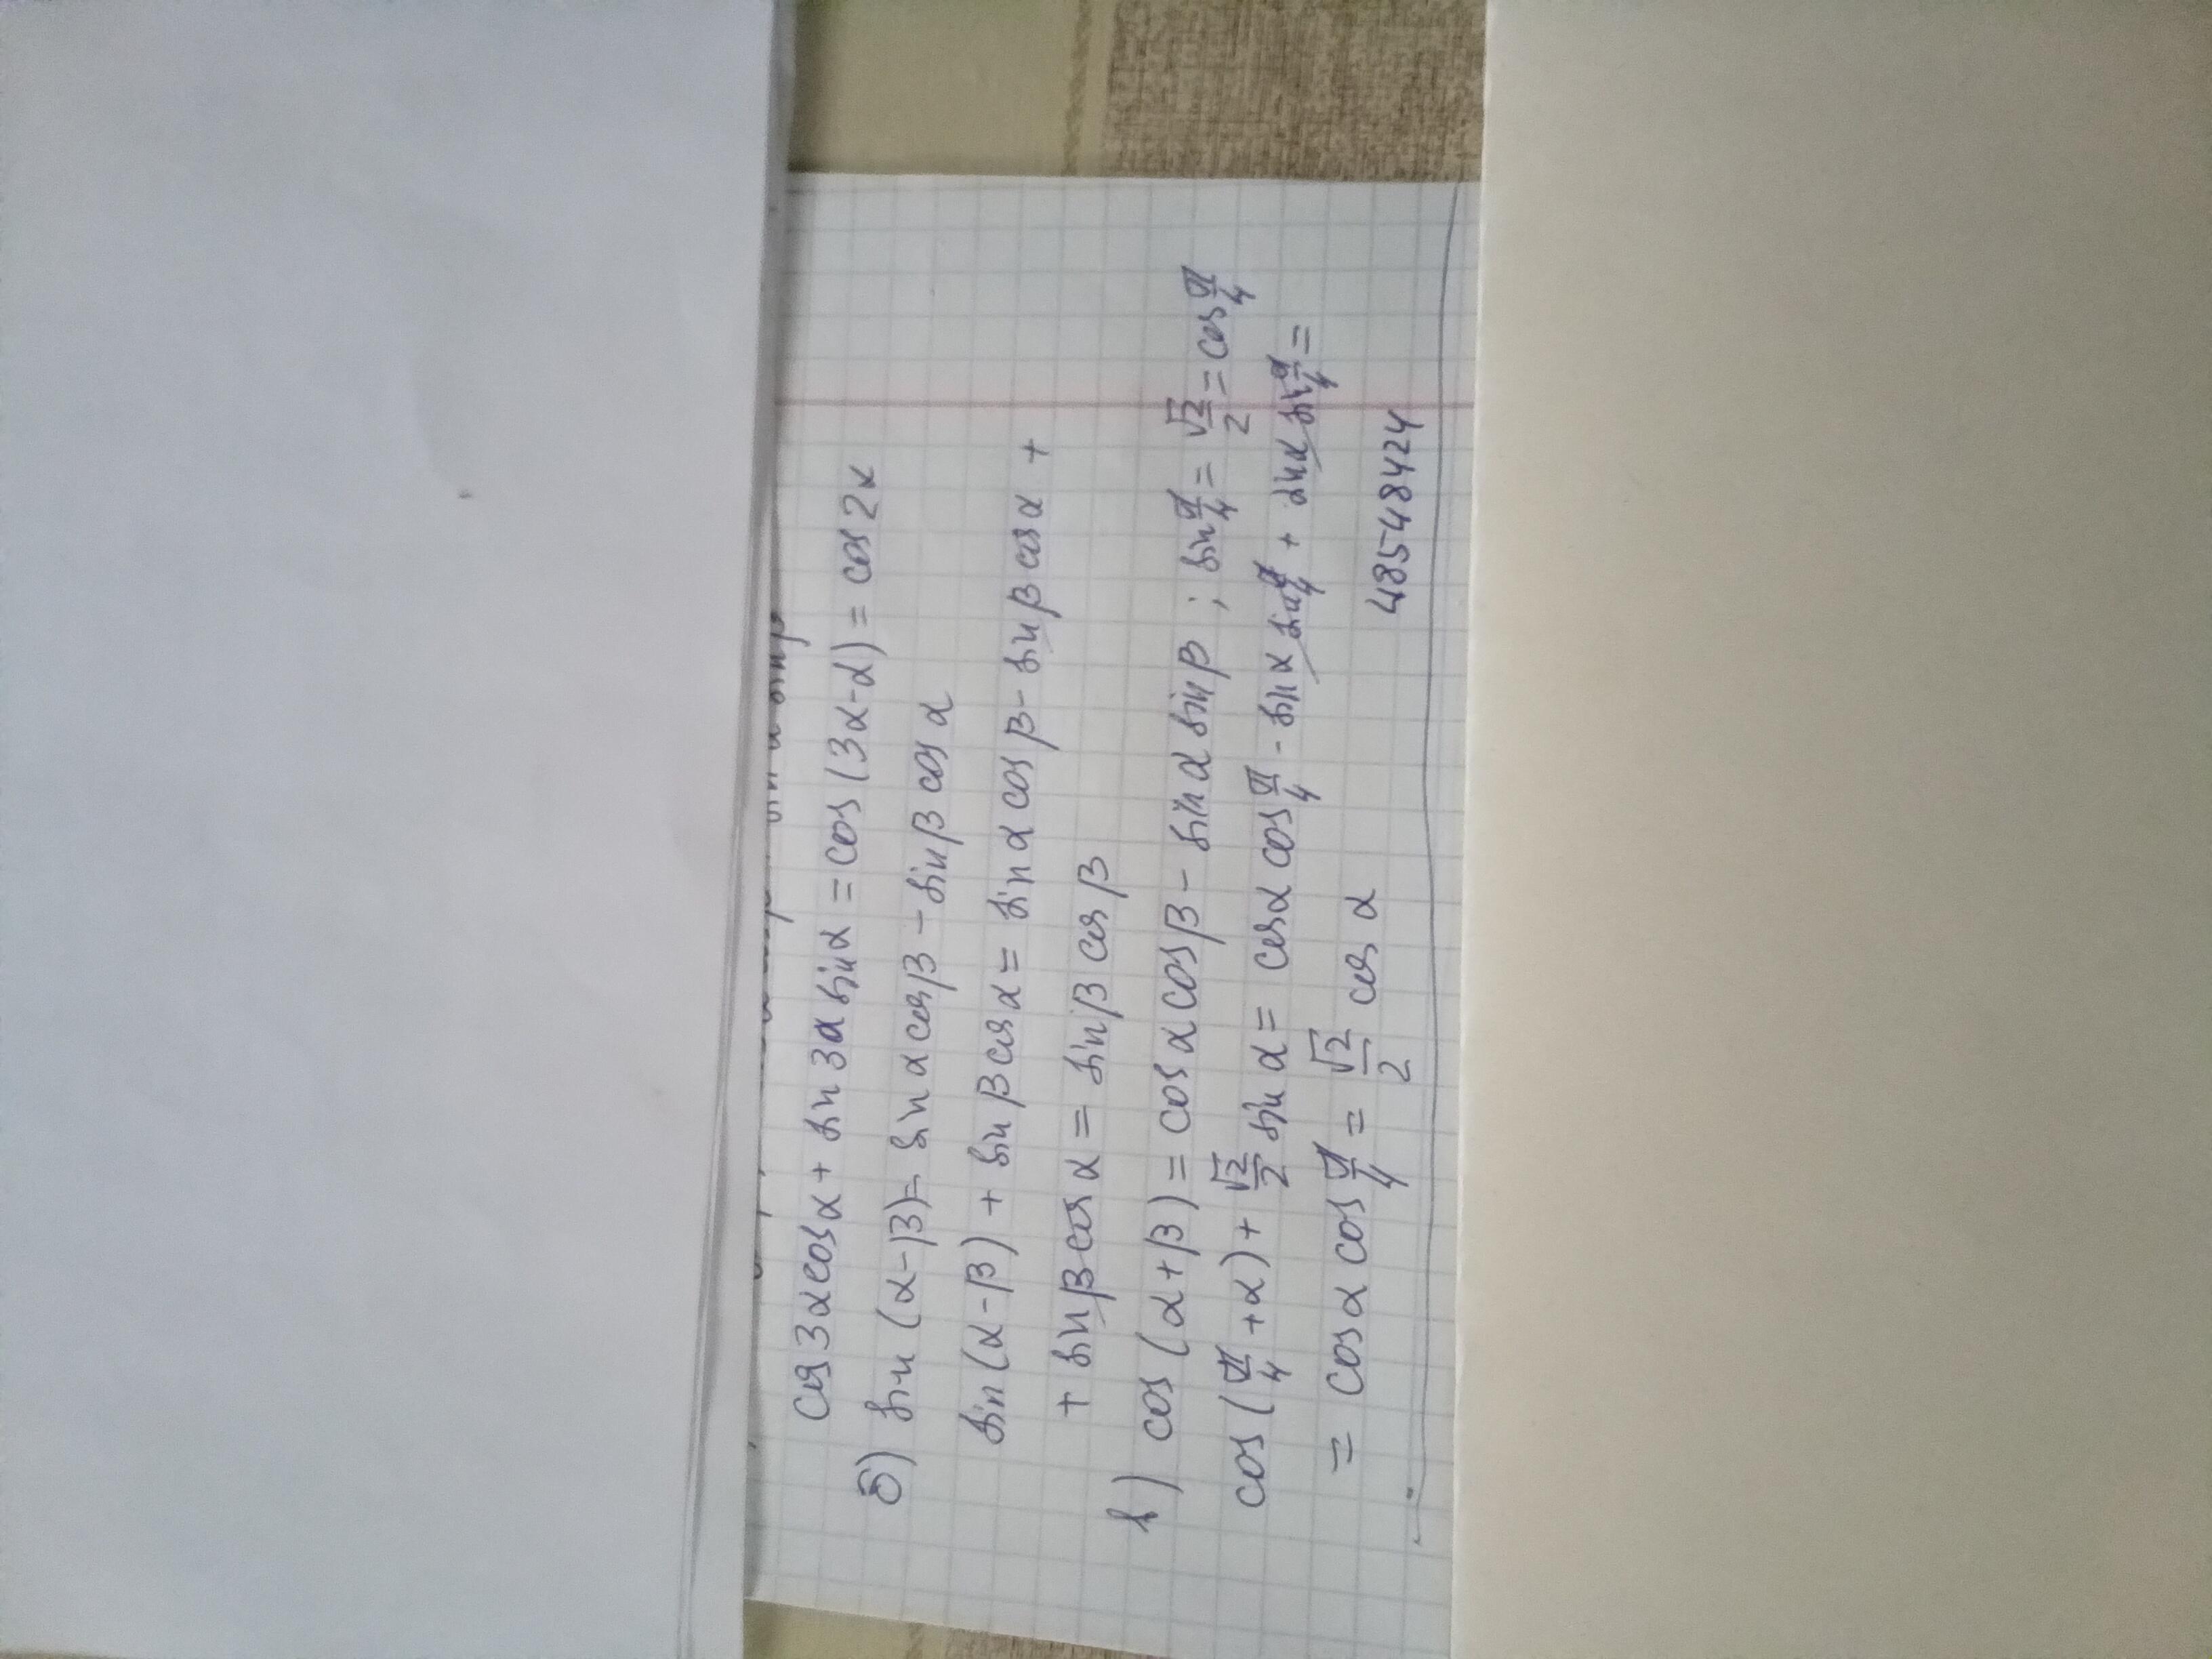 cos 3α cos α + sin 3α sin α = cos (3α-α) = cos 2α
б) sin (α-β) = sin α cos β - sin β cos α
sin (α-β) + sin β cos α = sin α cos β - sin β cos α +
+ sin β cos α = sin β cos β
в) cos (α+β) = cos α cos β - sin α sin β ; sin π/4 = √2/2 = cos π/4
cos (π/4 + α) + √2/2 sin α = cos α cos π/4 - sin α sin π/4 + sin α sin π/4 =
= cos α cos π/4 = √2/2 cos α
48548424